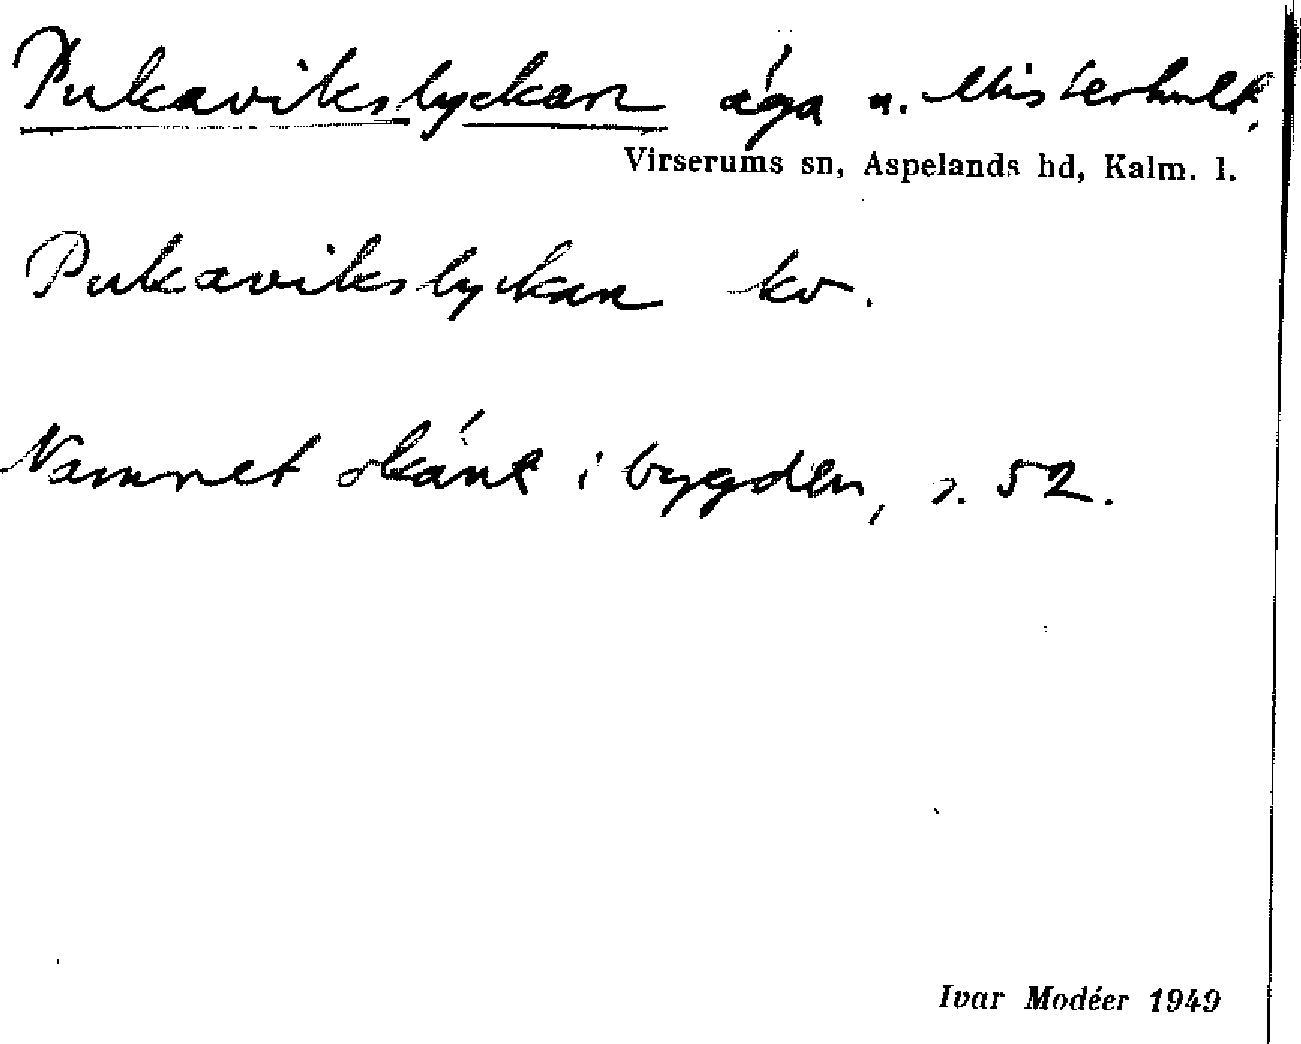 Pukavikslyckan äga u. Misterhult,
Virserums sn, Aspelands hd, Kalm. l.
Pukavikslyckan kv.
Namnet okänt i bygden, s. 52.
Ivar Modéer 1949